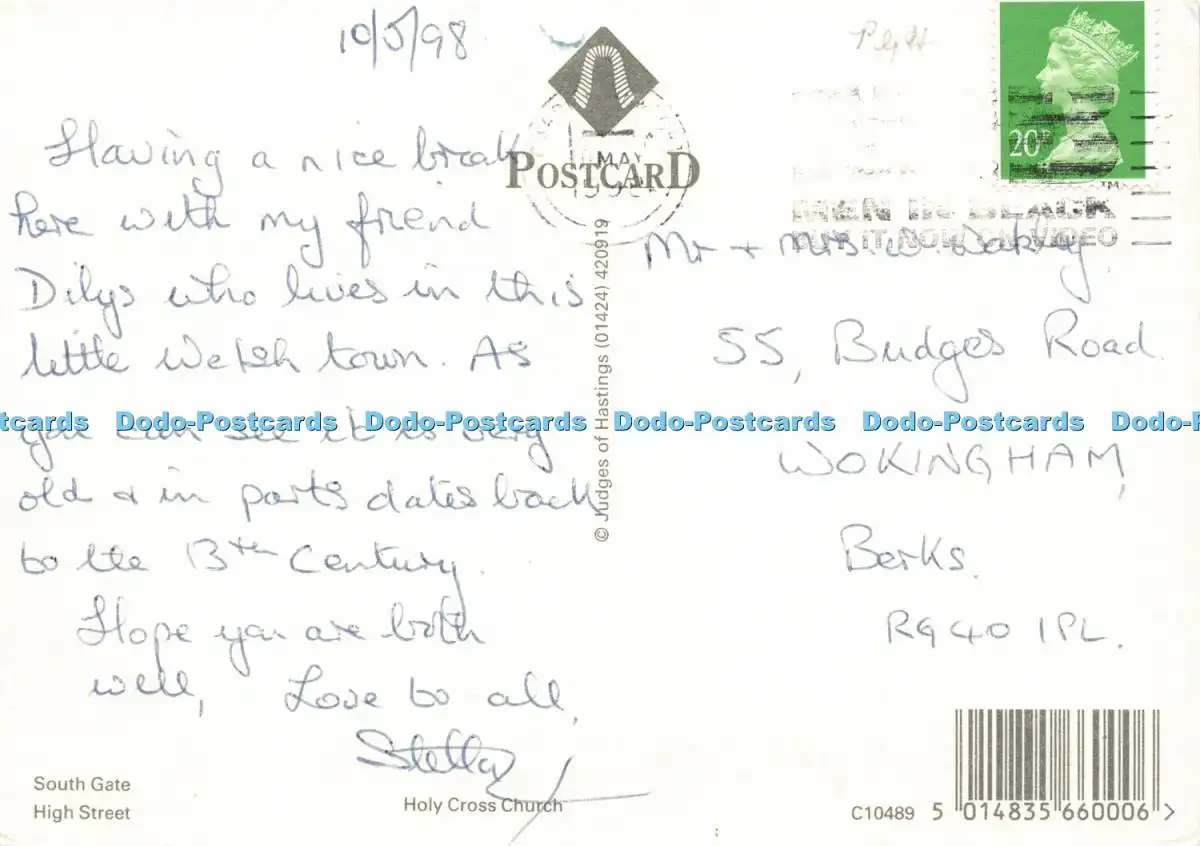 10/5/98
Having a nice break
here with my friend
Dilys who lives in this
little Welsh town. As
you can see it is very
old & in parts dates back
to the 13th Century.
Hope you are both
well, Love to all,
Stella
South Gate
High Street
Holy Cross Church
POSTCARD
MAY
© Judges of Hastings (01424) 420919
20P
MEN IN BLACK
BUY IT NOW ON VIDEO
Mr + Mrs W.
55, Budges Road
WOKINGHAM,
Berks.
RG40 1PL.
C10489
5 014835 660006 >
Dodo-Postcards Dodo-Postcards Dodo-Postcards Dodo-Postcards